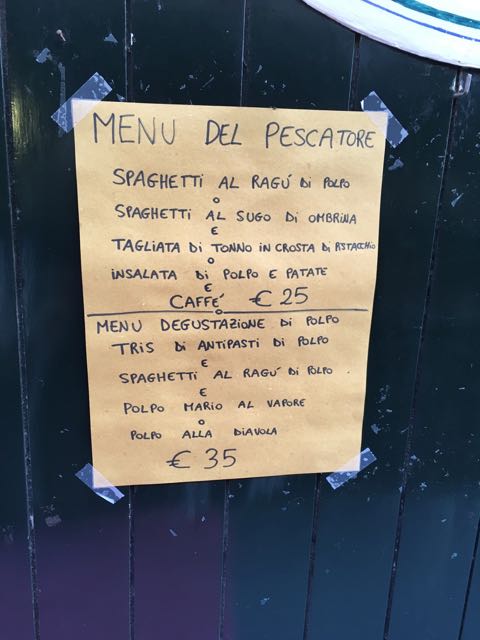 MENU DEL PESCATORE
SPAGHETTI AL RAGÚ DI POLPO
O
SPAGHETTI AL SUGO DI OMBRINA
E
TAGLIATA DI TONNO IN CROSTA DI PISTACCHIO
O
INSALATA DI POLPO E PATATE
E
CAFFÉ € 25
O
MENU DEGUSTAZIONE DI POLPO
TRIS DI ANTIPASTI DI POLPO
E
SPAGHETTI AL RAGÚ DI POLPO
E
POLPO MARIO AL VAPORE
O
POLPO ALLA DIAVOLA
€ 35